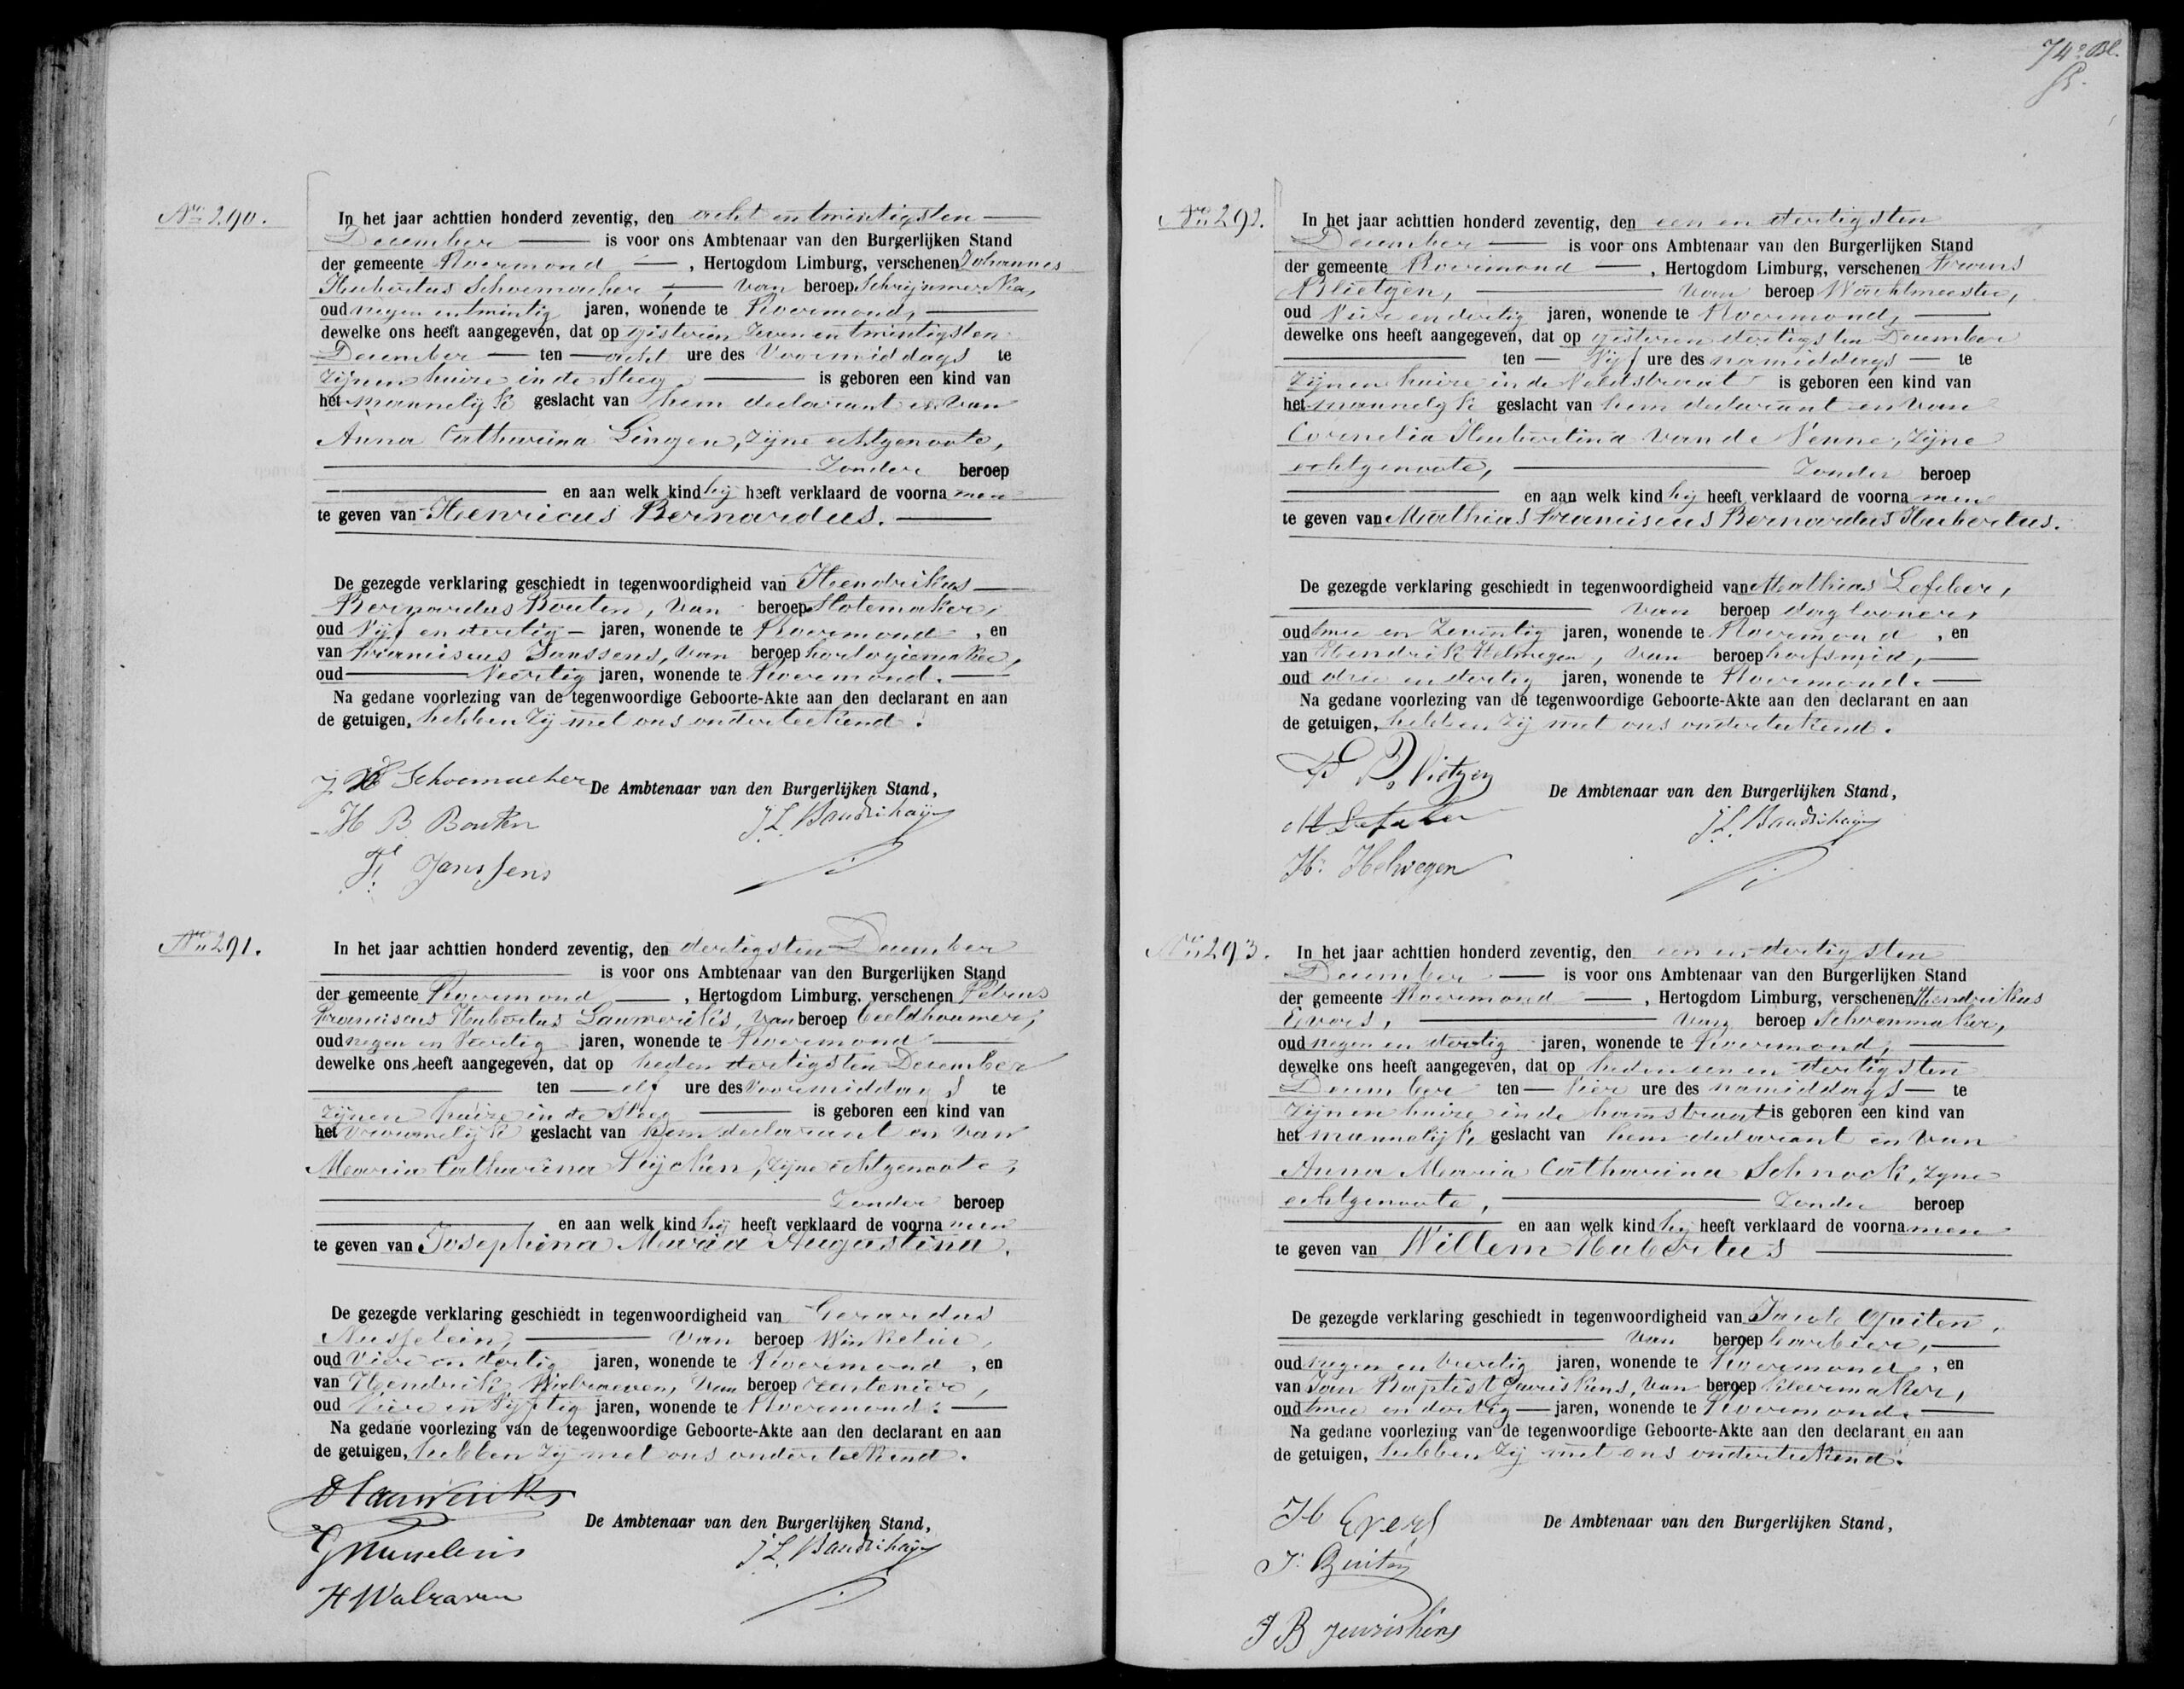 No 290.
In het jaar achttien honderd zeventig, den acht en twintigsten
December is voor ons Ambtenaar van den Burgerlijken Stand
der gemeente Roermond , Hertogdom Limburg, verschenen Johannes
Hubertus Schoemacher, van beroep Schrijnwerker,
oud negen en twintig jaren, wonende te Roermond,
dewelke ons heeft aangegeven, dat op gisteren zeven en twintigsten
December ten acht ure des voormiddags te
zijnen huize in de Steeg is geboren een kind van
het mannelijk geslacht van hem declarant en van
Anna Catharina Lingen, zijne echtgenoote,
zonder beroep
en aan welk kind hij heeft verklaard de voorna men
te geven van Henricus Bernardus.
De gezegde verklaring geschiedt in tegenwoordigheid van Hendrikus
Bernardus Bouten, van beroep Slotemaker,
oud vijf en dertig jaren, wonende te Roermond , en
van Franciscus Janssens, van beroep horlogiemaker,
oud veertig jaren, wonende te Roermond.
Na gedane voorlezing van de tegenwoordige Geboorte-Akte aan den declarant en aan
de getuigen, hebben zij met ons onderteekend.
J H Schoemacher De Ambtenaar van den Burgerlijken Stand,
H B Bouten
F. Janssens
No 291.
In het jaar achttien honderd zeventig, den dertigsten December
is voor ons Ambtenaar van den Burgerlijken Stand
der gemeente Roermond , Hertogdom Limburg. verschenen Petrus
Franciscus Hubertus Lauweriks, van beroep beeldhouwer,
oud negen en veertig jaren, wonende te Roermond
dewelke ons heeft aangegeven, dat op heden dertigsten December
ten elf ure des voormiddags te
zijnen huize in de Steeg is geboren een kind van
het vrouwelijk geslacht van hem declarant en van
Maria Catharina zijne echtgenoote,
zonder beroep
en aan welk kind hij heeft verklaard de voorna men
te geven van Josephina Maria Augustina.
De gezegde verklaring geschiedt in tegenwoordigheid van Gerardus
Nusselein, van beroep Winkelier,
oud vier en dertig jaren, wonende te Roermond , en
van Hendrik Walraven, van beroep rentenier,
oud vier en vijftig jaren, wonende te Roermond.
Na gedane voorlezing van de tegenwoordige Geboorte-Akte aan den declarant en aan
de getuigen, hebben zij met ons onderteekend.
Lauweriks
De Ambtenaar van den Burgerlijken Stand,
G Nusselein
H Walraven
74e Bl.
No 292.
In het jaar achttien honderd zeventig, den een en dertigsten
December is voor ons Ambtenaar van den Burgerlijken Stand
der gemeente Roermond , Hertogdom Limburg, verschenen Frans
Blietgen, van beroep Wachtmeester,
oud vier en dertig jaren, wonende te Roermond,
dewelke ons heeft aangegeven, dat op gisteren dertigsten December
ten vijf ure des namiddags te
zijnen huize in de Veldstraat is geboren een kind van
het mannelijk geslacht van hem declarant en van
Cornelia Hubertina van de Venne, zijne
echtgenoote, zonder beroep
en aan welk kind hij heeft verklaard de voorna men
te geven van Mathias Franciscus Bernardus Hubertus.
De gezegde verklaring geschiedt in tegenwoordigheid van Mathias Lefeber,
van beroep daglooner,
oud twee en zeventig jaren, wonende te Roermond , en
van Hendrik Helwegen, van beroep hoefsmid,
oud drie en dertig jaren, wonende te Roermond.
Na gedane voorlezing van de tegenwoordige Geboorte-Akte aan den declarant en aan
de getuigen, hebben zij met ons onderteekend.
F Blietgen
De Ambtenaar van den Burgerlijken Stand,
M Lefeber
H. Helwegen
No 293.
In het jaar achttien honderd zeventig, den een en dertigsten
December is voor ons Ambtenaar van den Burgerlijken Stand
der gemeente Roermond , Hertogdom Limburg, verschenen Hendrikus
Evers, van beroep Schoenmaker,
oud negen en dertig jaren, wonende te Roermond,
dewelke ons heeft aangegeven, dat op heden een en dertigsten
December ten vier ure des namiddags te
zijnen huize in de hamstraat is geboren een kind van
het mannelijk geslacht van hem declarant en van
Anna Maria Catharina Schnock, zijne
echtgenoote, zonder beroep
en aan welk kind hij heeft verklaard de voorna men
te geven van Willem Hubertus
De gezegde verklaring geschiedt in tegenwoordigheid van Jacob Quiten,
van beroep barbier,
oud negen en veertig jaren, wonende te Roermond , en
van Jan Baptist Jeuriskens, van beroep kleermaker,
oud twee en dertig jaren, wonende te Roermond.
Na gedane voorlezing van de tegenwoordige Geboorte-Akte aan den declarant en aan
de getuigen, hebben zij met ons onderteekend.
H Evers
De Ambtenaar van den Burgerlijken Stand,
J. Quiten
J B Jeuriskens